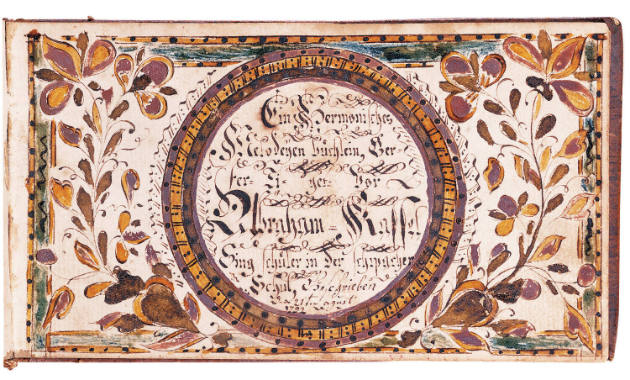 Ein Harmonisches
Melodeyen büchlein, Ver-
fer-ti-get vor
Abraham = Kassel
Sing schüler in der schipacher
Schul, Geschrieben